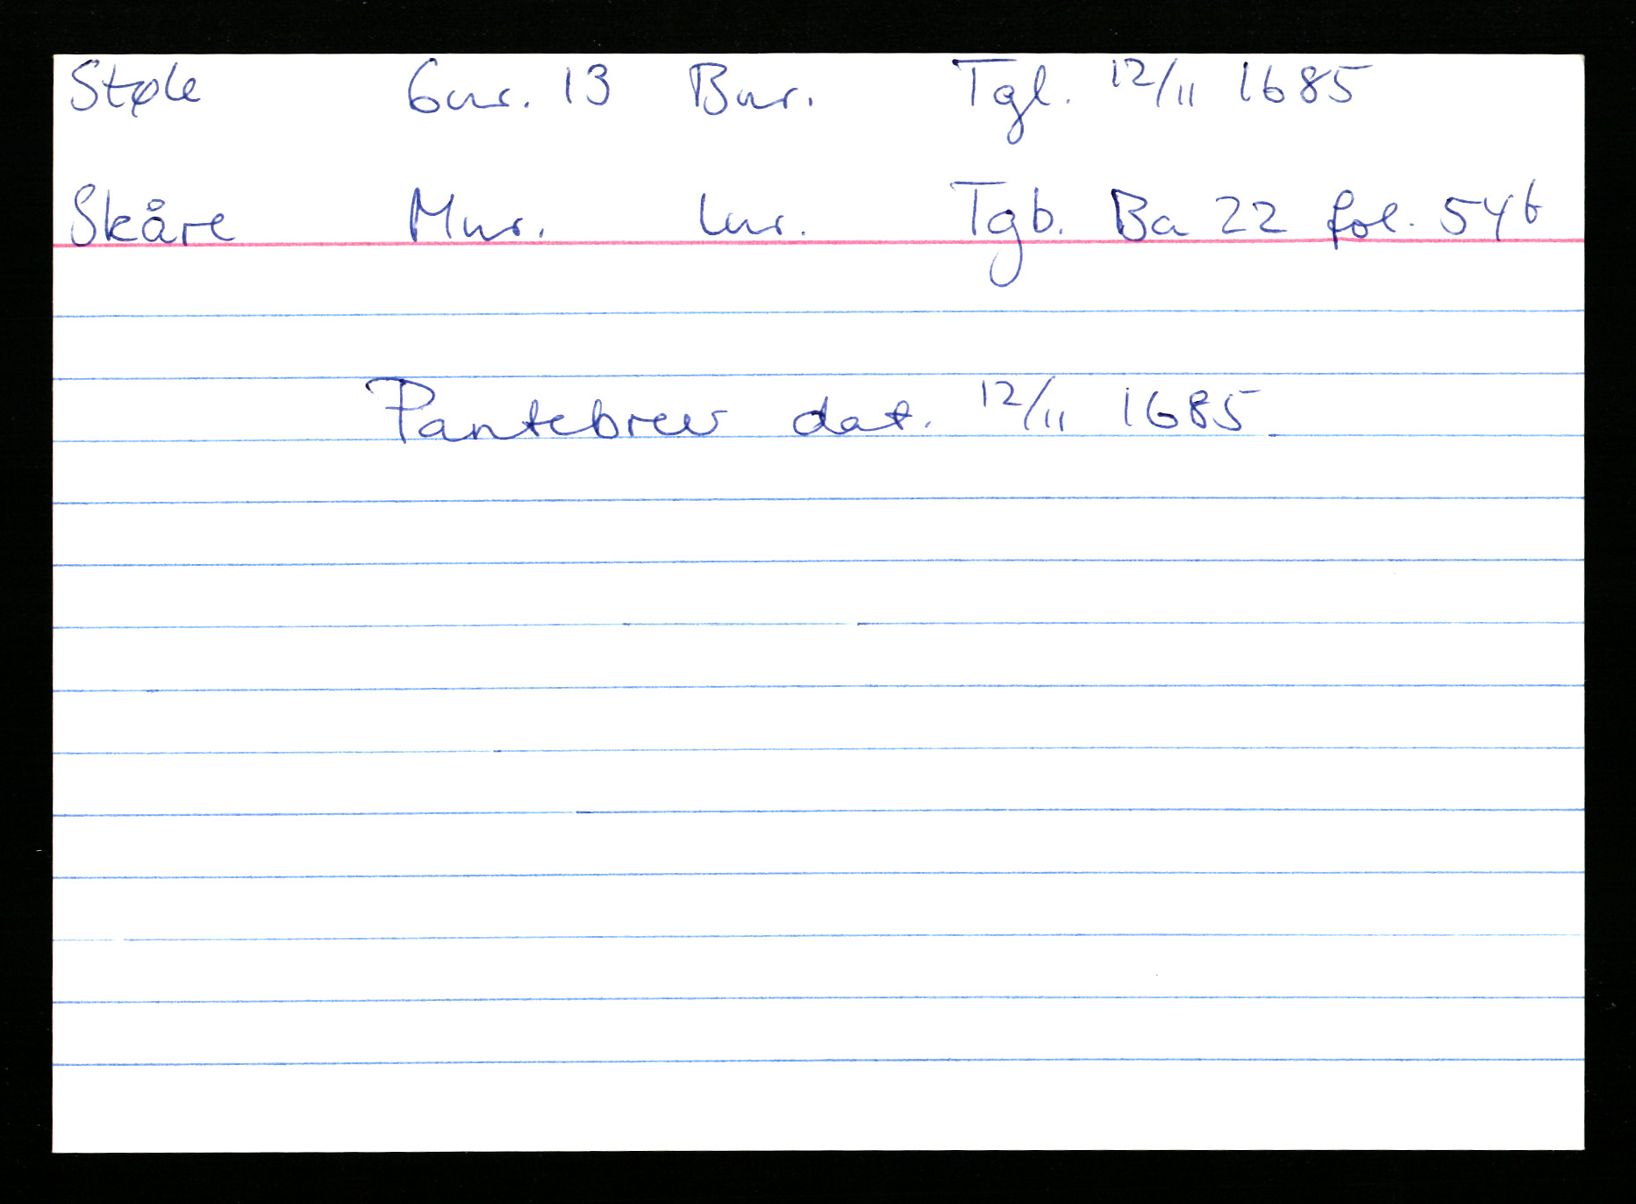 Støle Gnr. 13 Bnr. Tgl. 12/11 1685
Skåre Mnr. lnr. Tgb. Ba 22 fol. 54b
Pantebrev dat. 12/11 1685.